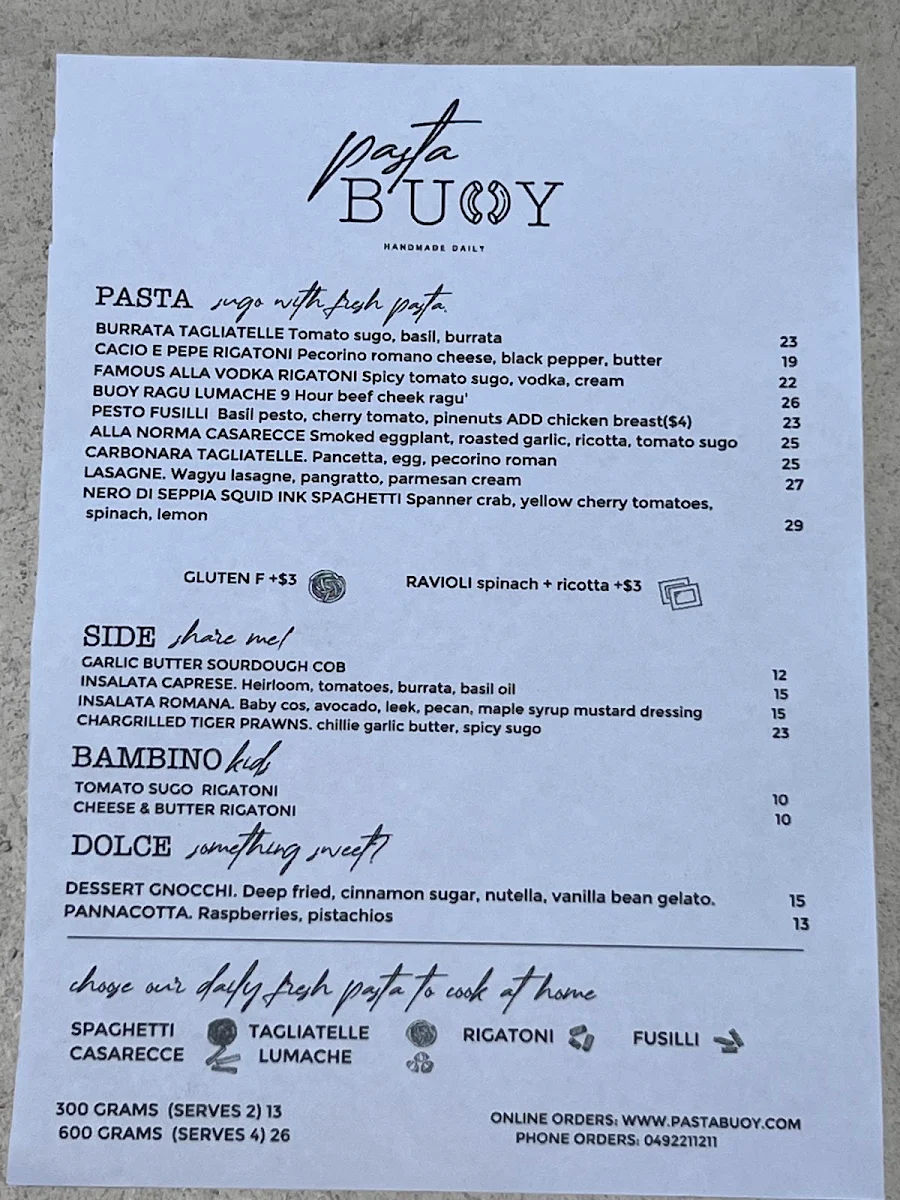 pasta
BUOY
HANDMADE DAILY
PASTA sugo with fresh pasta.
BURRATA TAGLIATELLE Tomato sugo, basil, burrata 23
CACIO E PEPE RIGATONI Pecorino romano cheese, black pepper, butter 19
FAMOUS ALLA VODKA RIGATONI Spicy tomato sugo, vodka, cream 22
BUOY RAGU LUMACHE 9 Hour beef cheek ragu' 26
PESTO FUSILLI Basil pesto, cherry tomato, pinenuts ADD chicken breast($4) 23
ALLA NORMA CASARECCE Smoked eggplant, roasted garlic, ricotta, tomato sugo 25
CARBONARA TAGLIATELLE. Pancetta, egg, pecorino roman 25
LASAGNE. Wagyu lasagne, pangratto, parmesan cream 27
NERO DI SEPPIA SQUID INK SPAGHETTI Spanner crab, yellow cherry tomatoes,
spinach, lemon 29
GLUTEN F +$3 RAVIOLI spinach + ricotta +$3
SIDE share me!
GARLIC BUTTER SOURDOUGH COB 12
INSALATA CAPRESE. Heirloom, tomatoes, burrata, basil oil 15
INSALATA ROMANA. Baby cos, avocado, leek, pecan, maple syrup mustard dressing 15
CHARGRILLED TIGER PRAWNS. chillie garlic butter, spicy sugo 23
BAMBINO kids
TOMATO SUGO RIGATONI 10
CHEESE & BUTTER RIGATONI 10
DOLCE something sweet?
DESSERT GNOCCHI. Deep fried, cinnamon sugar, nutella, vanilla bean gelato. 15
PANNACOTTA. Raspberries, pistachios 13
choose our daily fresh pasta to cook at home
SPAGHETTI TAGLIATELLE RIGATONI FUSILLI
CASARECCE LUMACHE
300 GRAMS (SERVES 2) 13
600 GRAMS (SERVES 4) 26
ONLINE ORDERS: WWW.PASTABUOY.COM
PHONE ORDERS: 0492211211